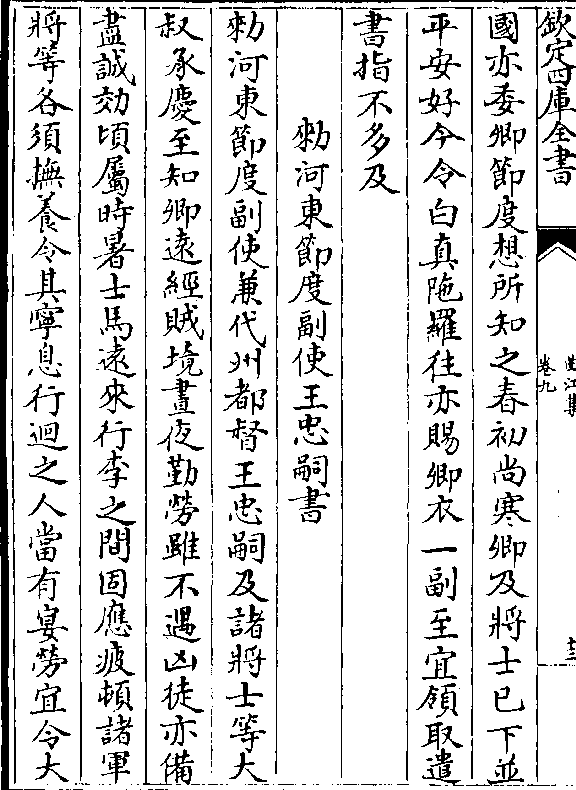 欽定四庫全書
曲江集
卷九
十三
國亦委卿節度想所知之春初尚寒卿及將士已下並
平安好今令白真陁羅往亦賜卿衣一副至宜領取遣
書指不多及
勑河東節度副使王忠嗣書
勑河東節度副使兼代州都督王忠嗣及諸將士等大
叔承慶至知卿遠經賊境晝夜勤勞雖不遇凶徒亦備
盡誠効頃屬時暑士馬遠來行李之間固應疲頓諸軍
將等各須撫養令其寧息行迴之人當有宴勞宜令大